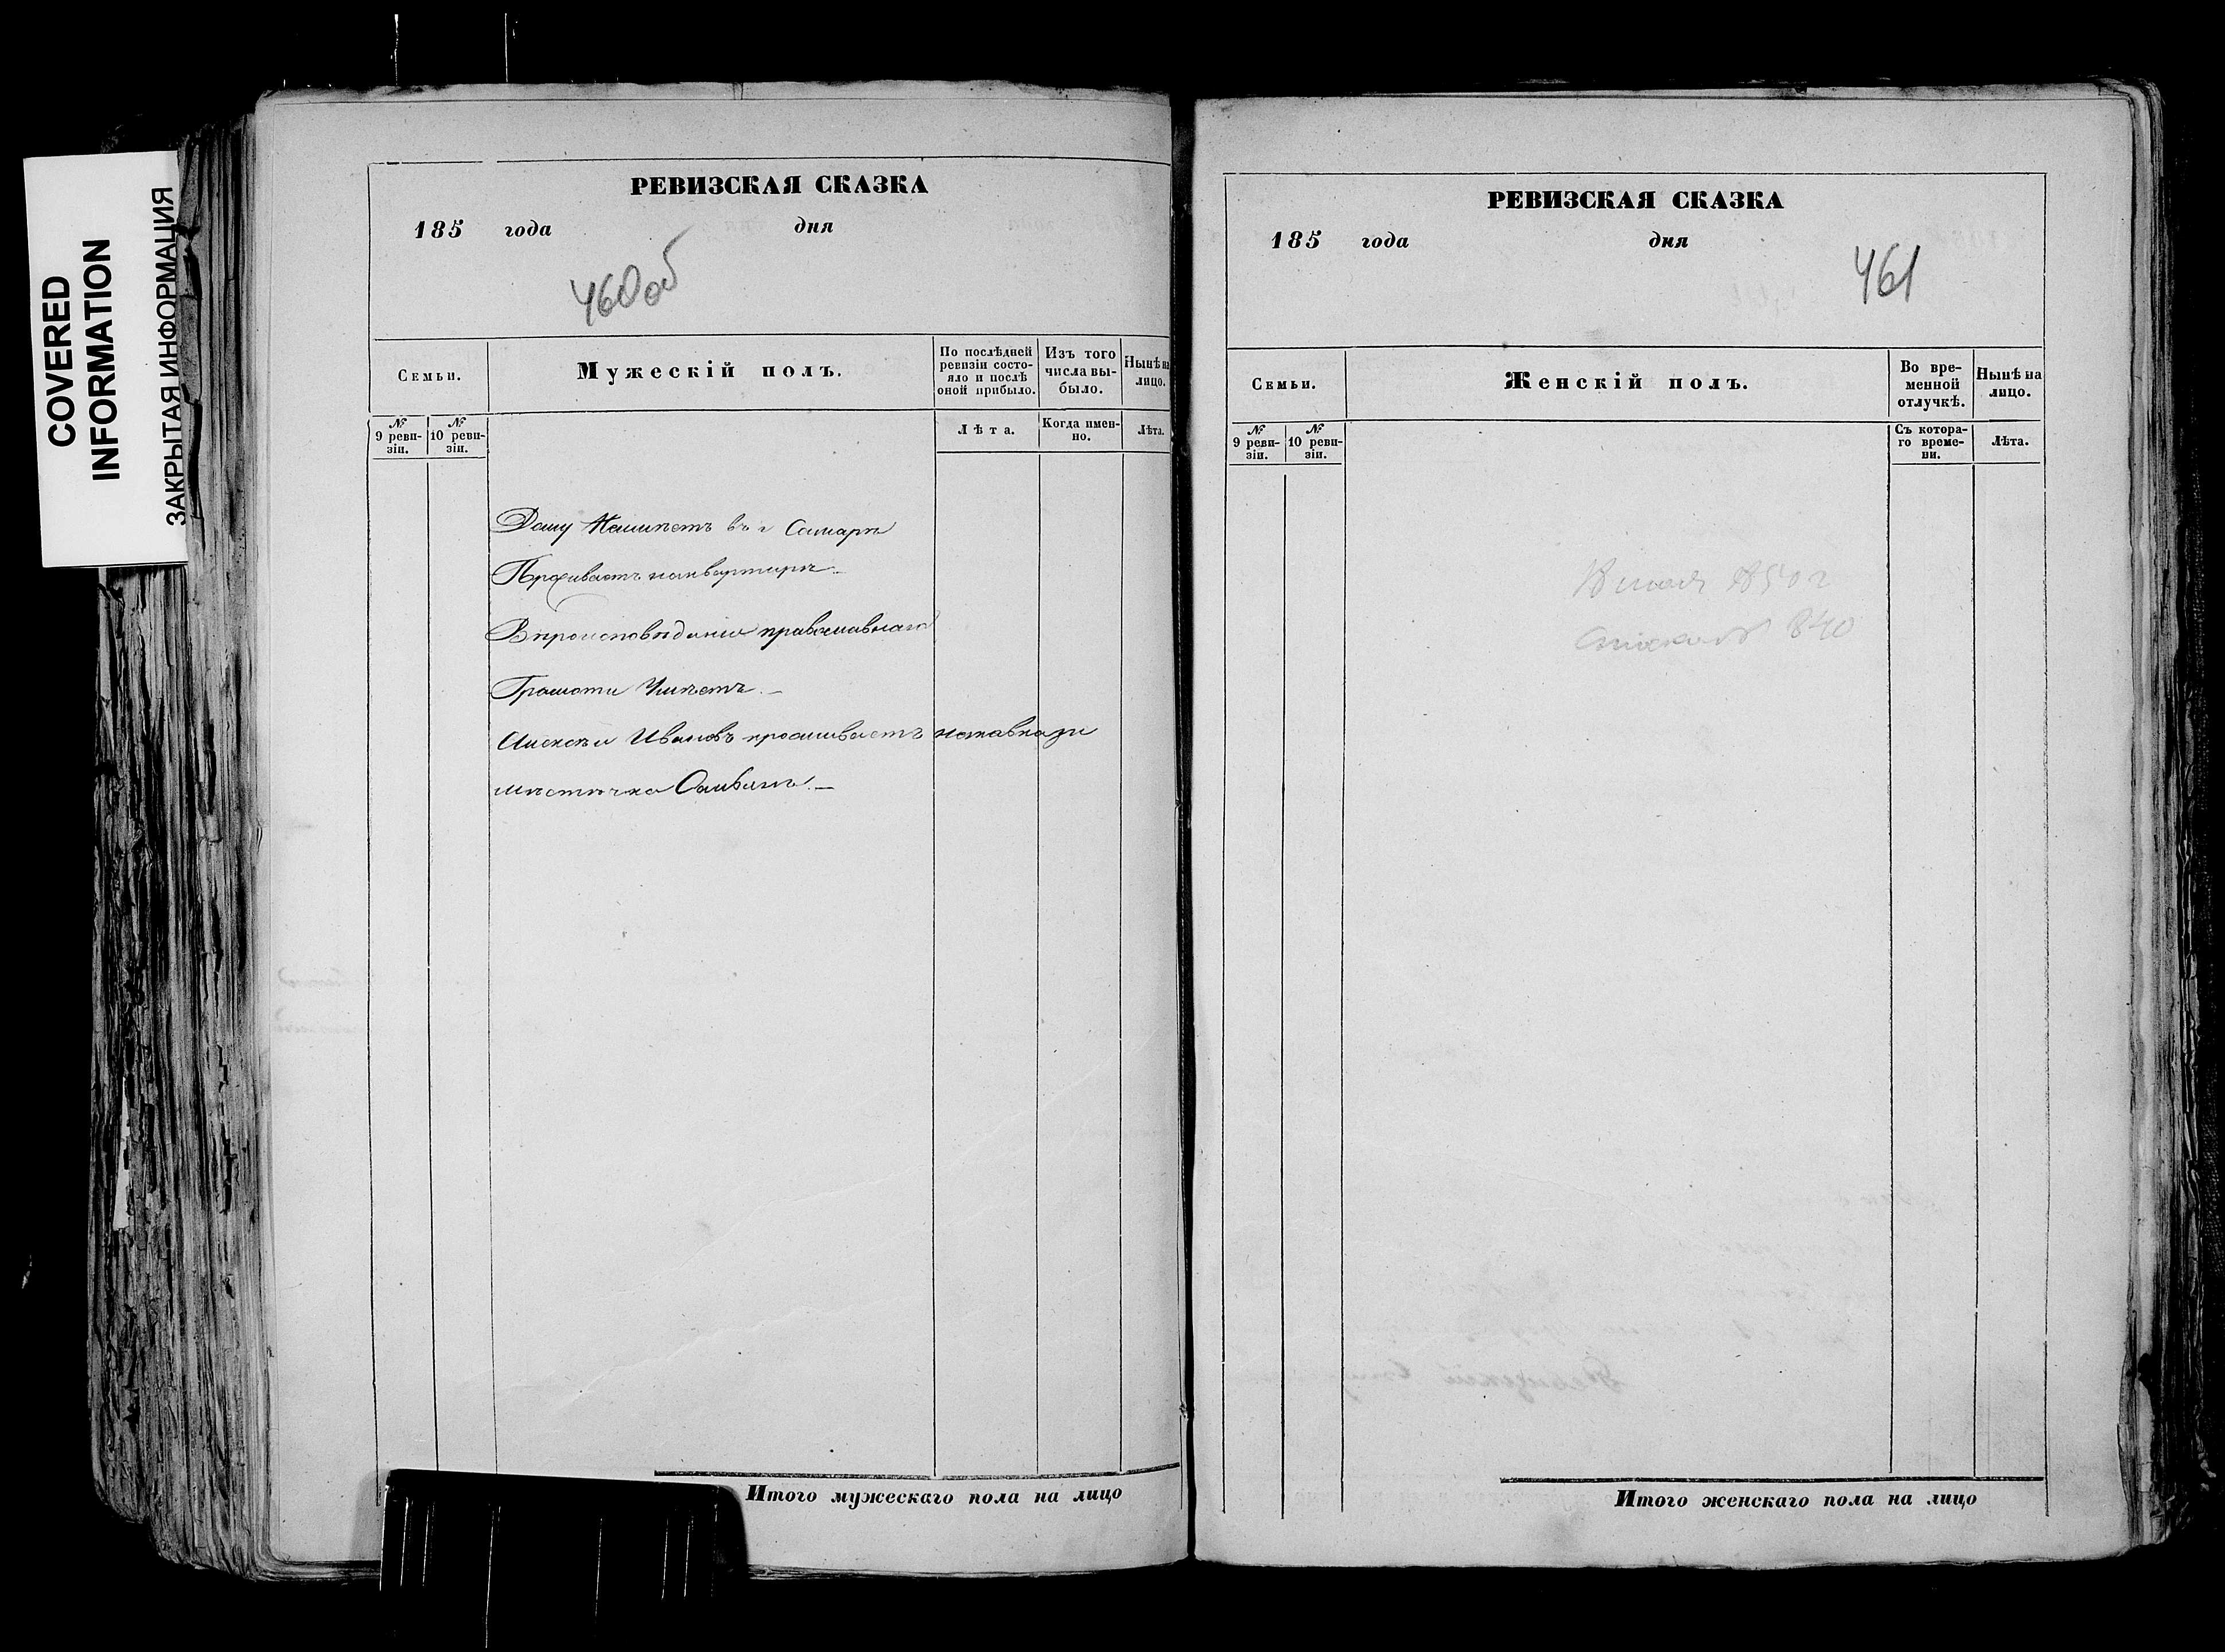 COVERED
INFORMATION
ЗАКРЫТАЯ ИНФОРМАЦИЯ
РЕВИЗСКАЯ СКАЗКА
185 года дня
460 об
Семьи.
Мужескій полъ.
По послѣдней ревизіи состо-
яло и послѣ
оной прибыло.
Изъ того
числа вы-
было.
Нынѣ на
лицо.
№
9 реви-
зіи.
№
10 реви-
зіи.
Лѣта.
Когда имен-
но.
Лѣта.
Дому Неимѣетъ въ г Самарѣ
Проживаетъ наквартирѣ
Вѣроисповѣданія православнаго
Грамоти Умѣетъ.
Алексѣй Ивановъ проживаетъ накавкази
РЕВИЗСКАЯ СКАЗКА
185 года дня
461
Семьи.
Женскій полъ.
Во вре-
менной
отлучкѣ.
Нынѣ на
лицо.
№
9 реви-
зіи.
№
10 реви-
зіи.
Съ котора-
го време-
ни.
Лѣта.
Итого мужескаго пола на лицо
Итого женскаго пола на лицо